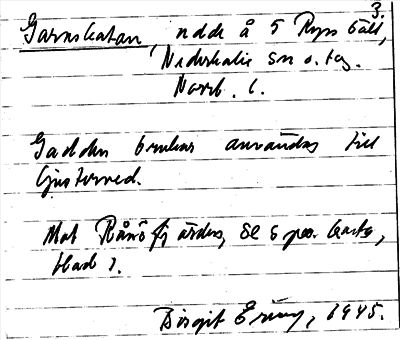 3.
Garnskatan, udde å 5 Ryss båll,
Nederkalix sn o. tg.
Norrb. l.
Gadden brukar användas till
ljusterved.
Mot Rånö fjärden, se s pec. karta,
blad 7.
Birgit Ering, 1945.